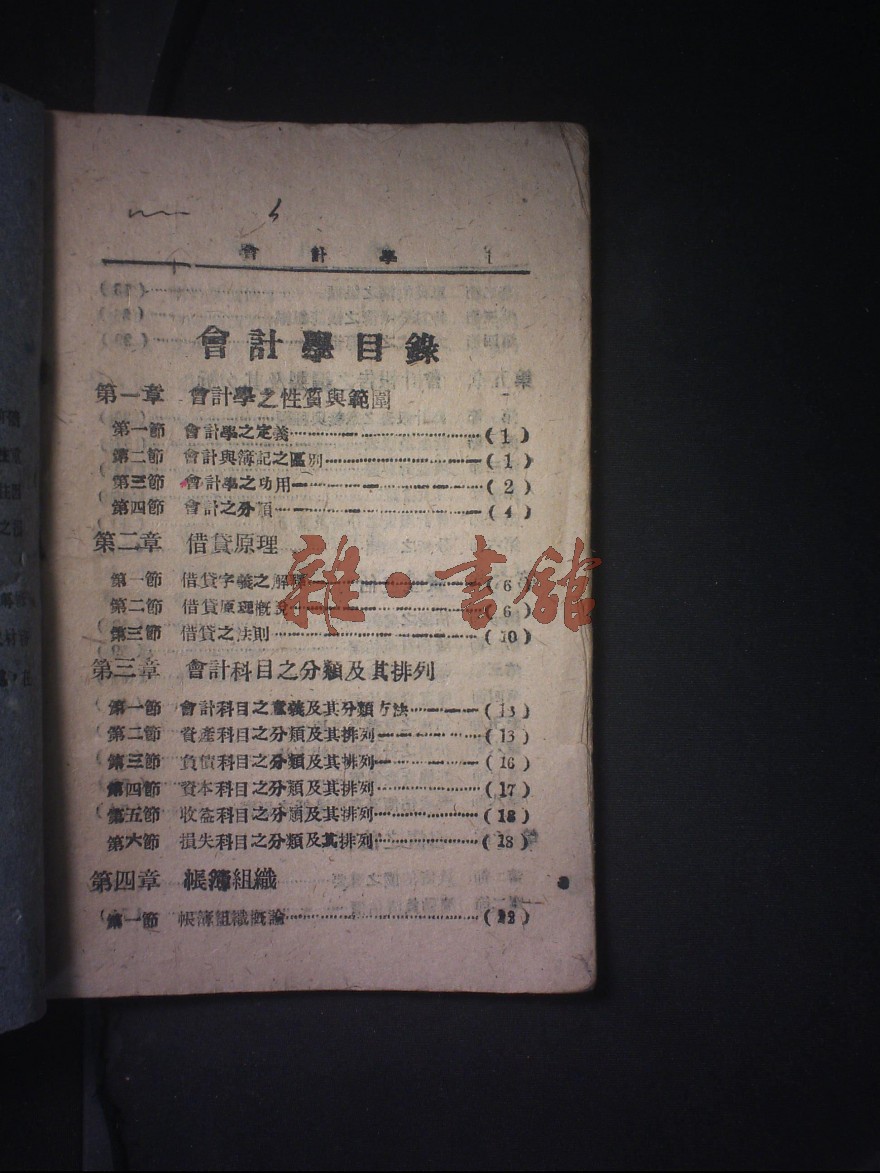 會計學 1
會計學目錄
第一章 會計學之性質與範圍
第一節 會計學之定義……………………(1)
第二節 會計與簿記之區別……………………(1)
第三節 會計學之功用……………………(2)
第四節 會計之分類……………………(4)
第二章 借貸原理
第一節 借貸字義之解釋……………………(6)
第二節 借貸原理概說……………………(6)
第三節 借貸之法則……………………(10)
第三章 會計科目之分類及其排列
第一節 會計科目之意義及其分類方法……………………(13)
第二節 資產科目之分類及其排列……………………(13)
第三節 負債科目之分類及其排列……………………(16)
第四節 資本科目之分類及其排列……………………(17)
第五節 收益科目之分類及其排列……………………(18)
第六節 損失科目之分類及其排列……………………(18)
第四章 帳簿組織
第一節 帳簿組織概論……………………(22)
雜·書館